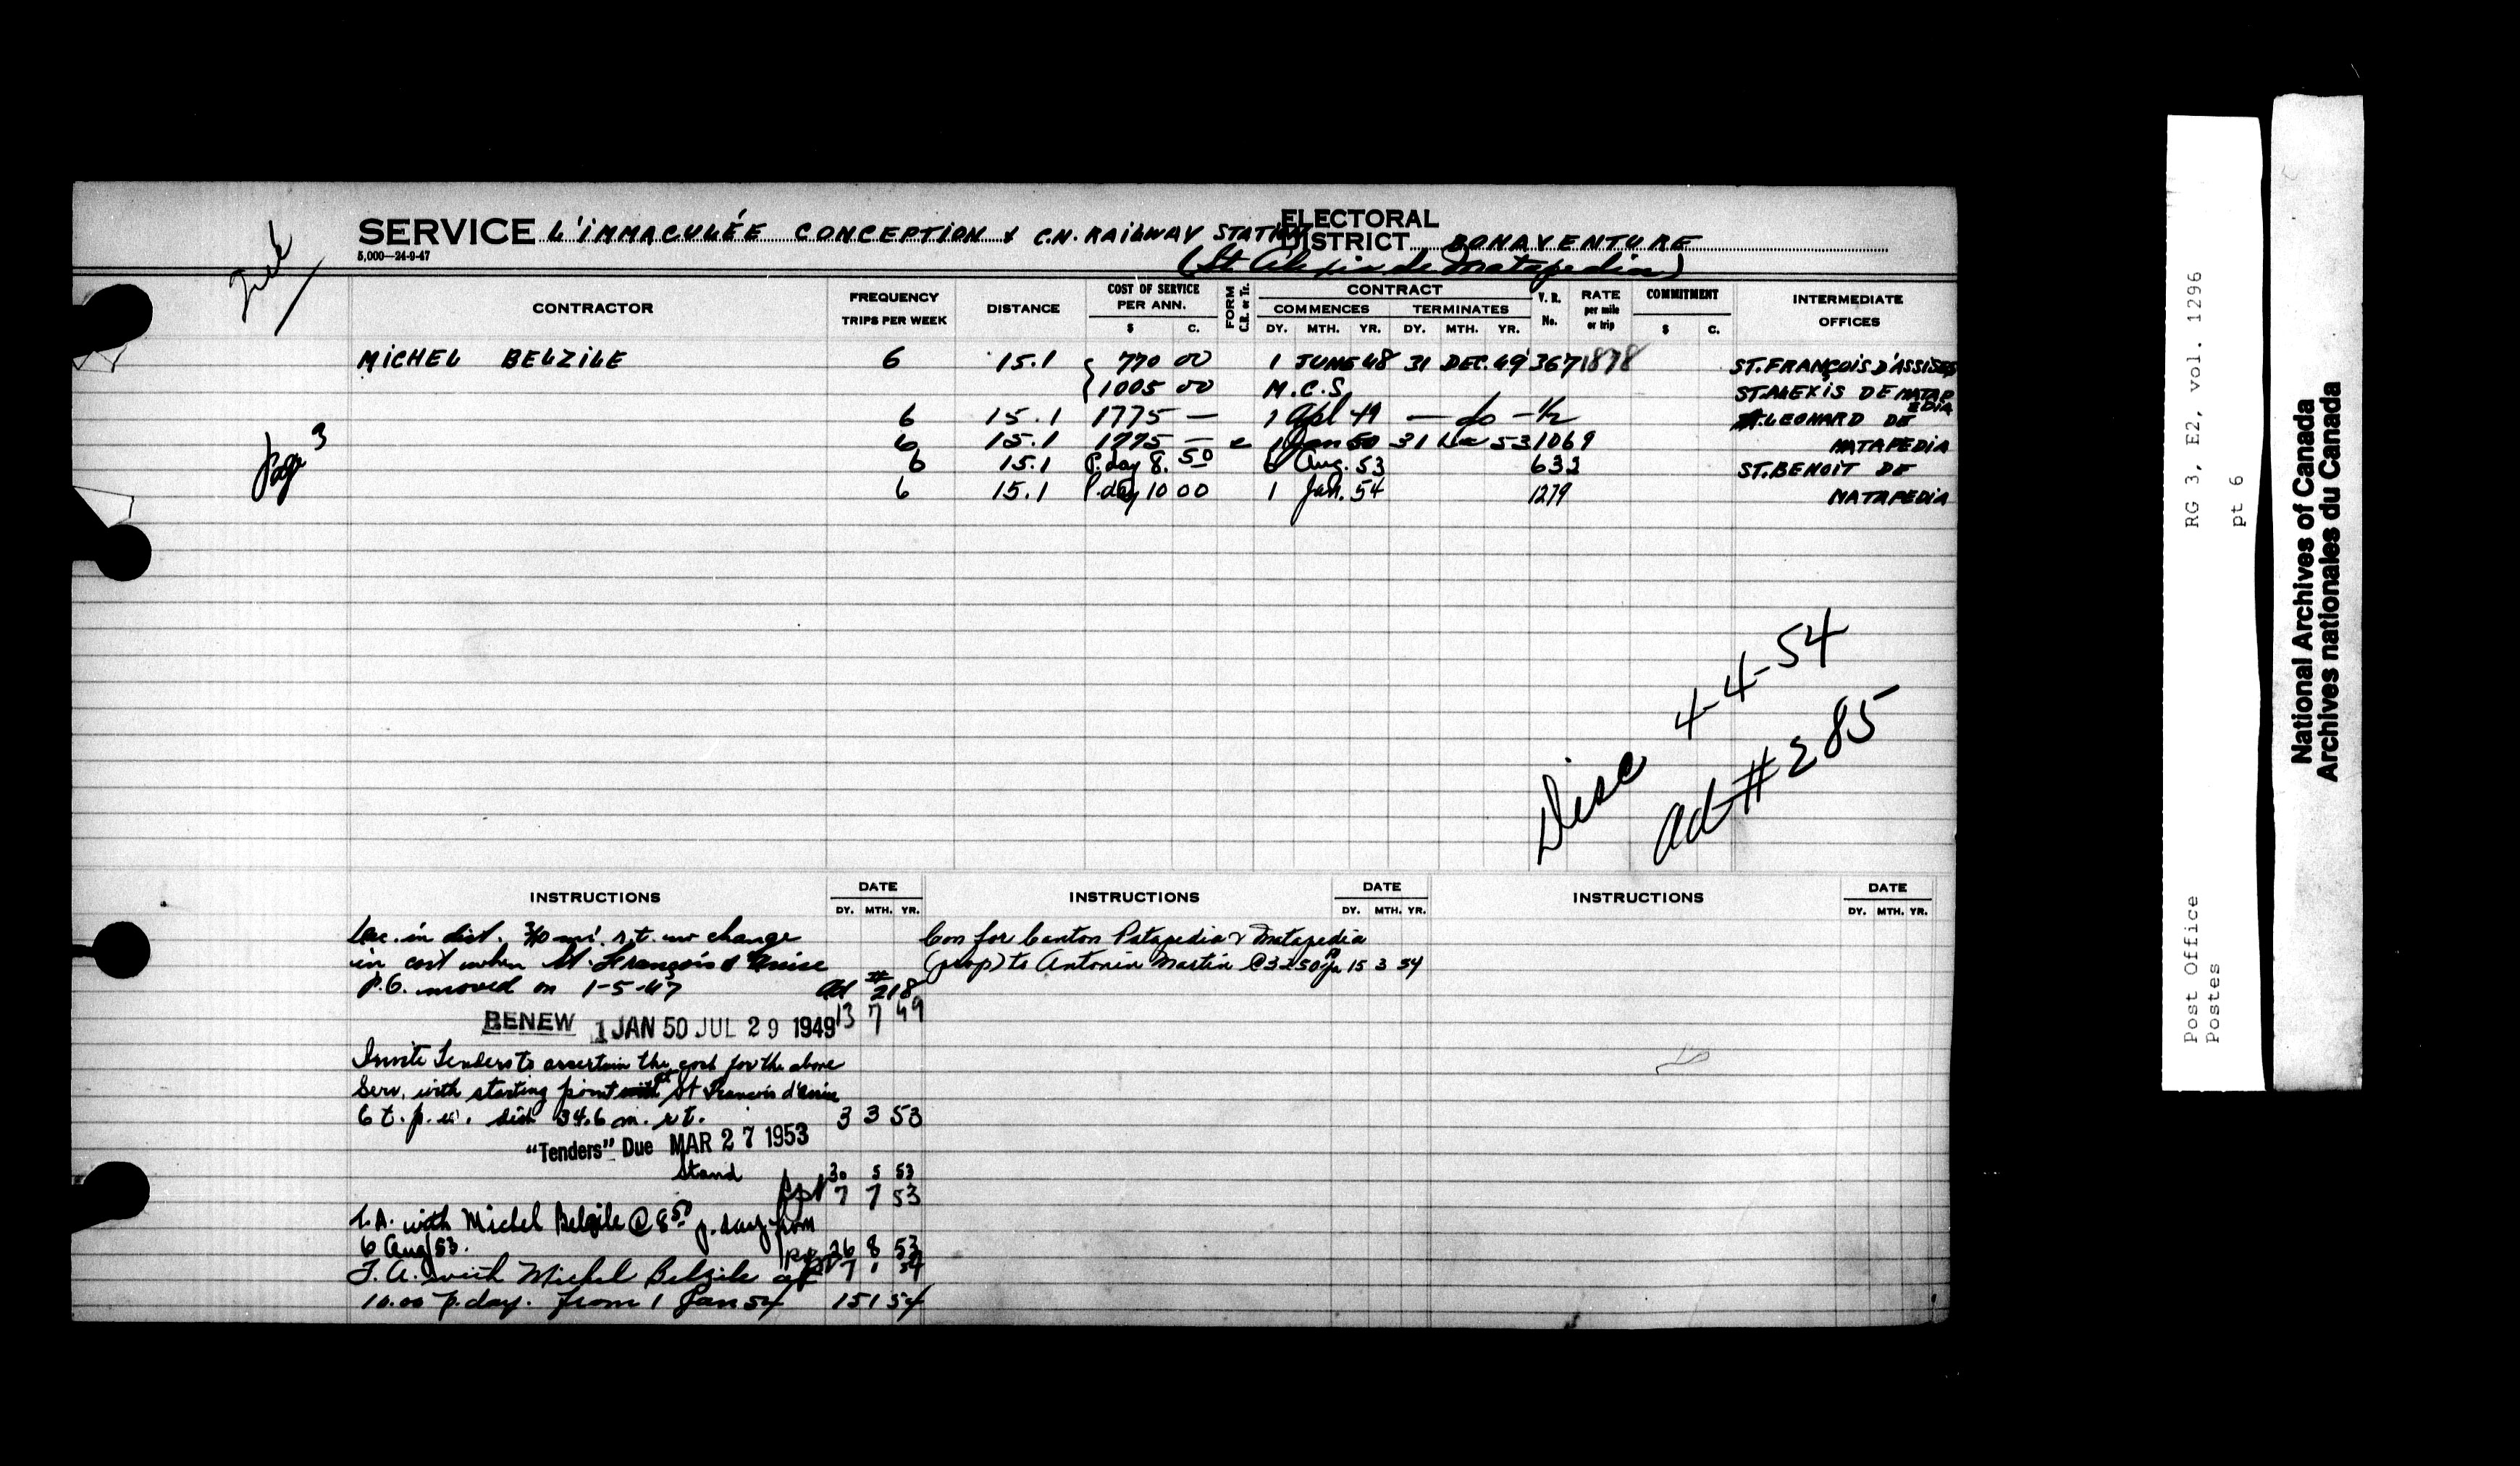 SERVICE L'IMMACULÉE CONCEPTION & C.N. RAILWAY STATION ELECTORAL DISTRICT BONAVENTURE
5,000—24-9-47
(St Alexis de Matapedia)
CONTRACTOR FREQUENCY TRIPS PER WEEK DISTANCE COST OF SERVICE PER ANN. $ C. FORM C.R. or Tr. CONTRACT COMMENCES DY. MTH. YR. TERMINATES DY. MTH. YR. V. R. No. RATE per mile or trip COMMITMENT $ C. INTERMEDIATE OFFICES
MICHEL BELZILE 6 15.1 770 00 1 JUNE 48 31 DEC. 49 367 1878 ST. FRANÇOIS D'ASSISES
1005 00 M.C.S. ST. ALEXIS DE MATAPEDIA
6 15.1 1775 — 1 Apl 49 — do — 1/2 ST. LEONARD DE
6 15.1 1775 — 1 Jan 50 31 Dec 53 1069 MATAPEDIA
6 15.1 P. day 8.50 6 Aug. 53 632 ST. BENOIT DE
6 15.1 P. day 10 00 1 Jan. 54 1279 MATAPEDIA
Page 3
Disc 4-4-54
ad # 285
INSTRUCTIONS DATE DY. MTH. YR. INSTRUCTIONS DATE DY. MTH. YR. INSTRUCTIONS DATE DY. MTH. YR.
in dist. 3/10 mi. r.t. no change
in cost when St. François d'Assise
P.O. moved on 1-5-47 Ad # 218
13 7 49
RENEW 1 JAN 50 JUL 29 1949
Invite Tenders to ascertain the cost for the above
Serv. with starting point at St Francois d'Assise
6 t.p.w. dist 34.6 m. r.t. 3 3 53
"Tenders" Due MAR 27 1953
Stand 30 5 53
7 7 53
T.A. with Michel Belzile @ 8.50 p. day from
6 Aug/53. 26 8 53
7 1 54
T.A. with Michel Belzile at
10.00 p. day. from 1 Jan 54 15 1 54
Con for Canton Patapedia & Matapedia
(prop) to Antonin Martin @ 3250 pa 15 3 54
RG 3, E2, vol. 1296
pt 6
Post Office
Postes
National Archives of Canada
Archives nationales du Canada